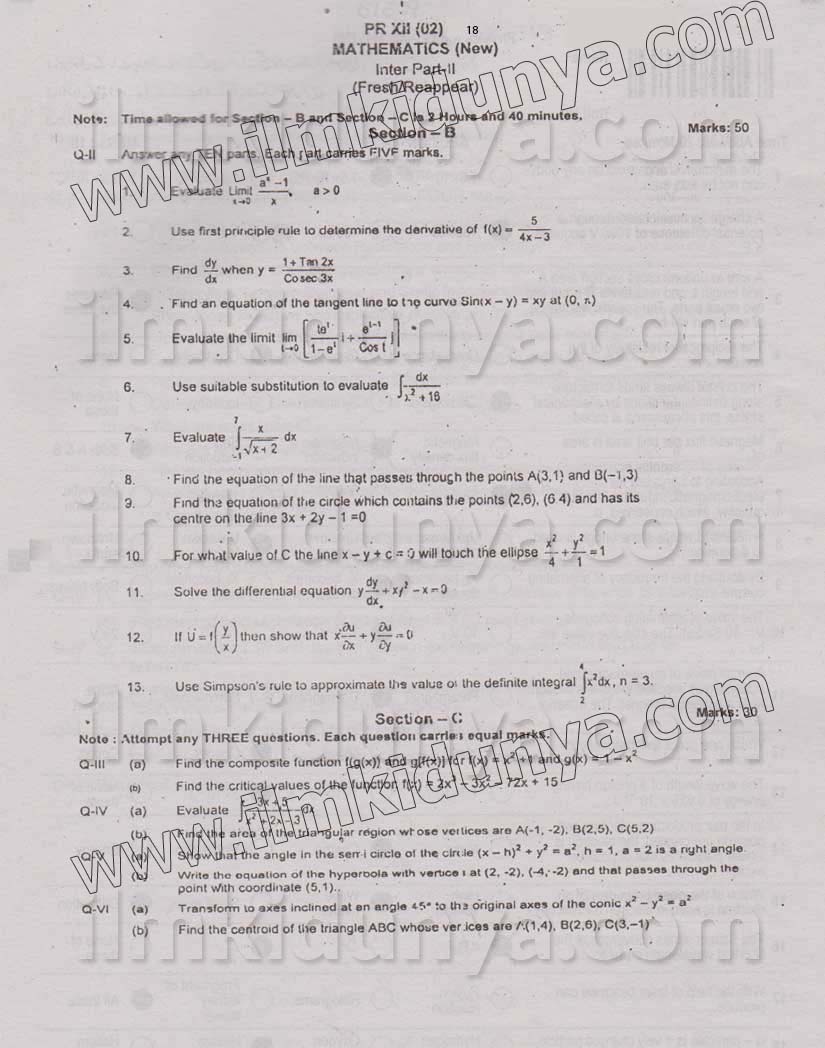 PR XII (02) 18
MATHEMATICS (New)
Inter Part-II
(Fresh/Reappear)
Note: Time allowed for Section – B and Section – C is 2 Hours and 40 minutes.
Section – B Marks: 50
Q-II Answer any TEN parts. Each part carries FIVE marks.
1. Evaluate Limit x→0 (a^x – 1)/x, a > 0
2. Use first principle rule to determine the derivative of f(x) = 5/(4x – 3)
3. Find dy/dx when y = (1 + Tan 2x)/(Cosec 3x)
4. Find an equation of the tangent line to the curve Sin(x – y) = xy at (0, π)
5. Evaluate the limit lim t→0 [te^t/(1 – e^t) i + e^(t–1)/Cos t j]
6. Use suitable substitution to evaluate ∫ dx/(x² + 16)
7. Evaluate ∫_{-1}^{7} x/√(x + 2) dx
8. Find the equation of the line that passes through the points A(3,1) and B(–1,3)
9. Find the equation of the circle which contains the points (2,6), (6 4) and has its
centre on the line 3x + 2y – 1 =0
10. For what value of C the line x – y + c = 0 will touch the ellipse x²/4 + y²/1 = 1
11. Solve the differential equation y dy/dx + xy² – x = 0
12. If U = f(y/x) then show that x ∂u/∂x + y ∂u/∂y = 0
13. Use Simpson's rule to approximate the value of the definite integral ∫_{2}^{4} x² dx, n = 3.
Section – C Marks: 30
Note : Attempt any THREE questions. Each question carries equal marks.
Q-III (a) Find the composite function f(g(x)) and g[f(x)] for f(x) = x² +1 and g(x) = 1 – x²
(b) Find the critical values of the function f(x) = 2x³ – 3x² – 72x + 15
Q-IV (a) Evaluate ∫ dx
(b) Find the area of the triangular region whose vertices are A(-1, -2), B(2,5), C(5,2)
Q-V (a) Show that the angle in the semi circle of the circle (x – h)² + y² = a², h = 1, a = 2 is a right angle.
(b) Write the equation of the hyperbola with vertices at (2, -2), (-4, -2) and that passes through the
point with coordinate (5,1)..
Q-VI (a) Transform to axes inclined at an angle 45° to the original axes of the conic x² – y² = a²
(b) Find the centroid of the triangle ABC whose vertices are A(1,4), B(2,6), C(3,–1)
www.ilmkidunya.com
www.ilmkidunya.com
ilmkidunya.com
ilmkidunya.com
ilmkidunya.com
ilmkidunya.com
ilmkidunya.com